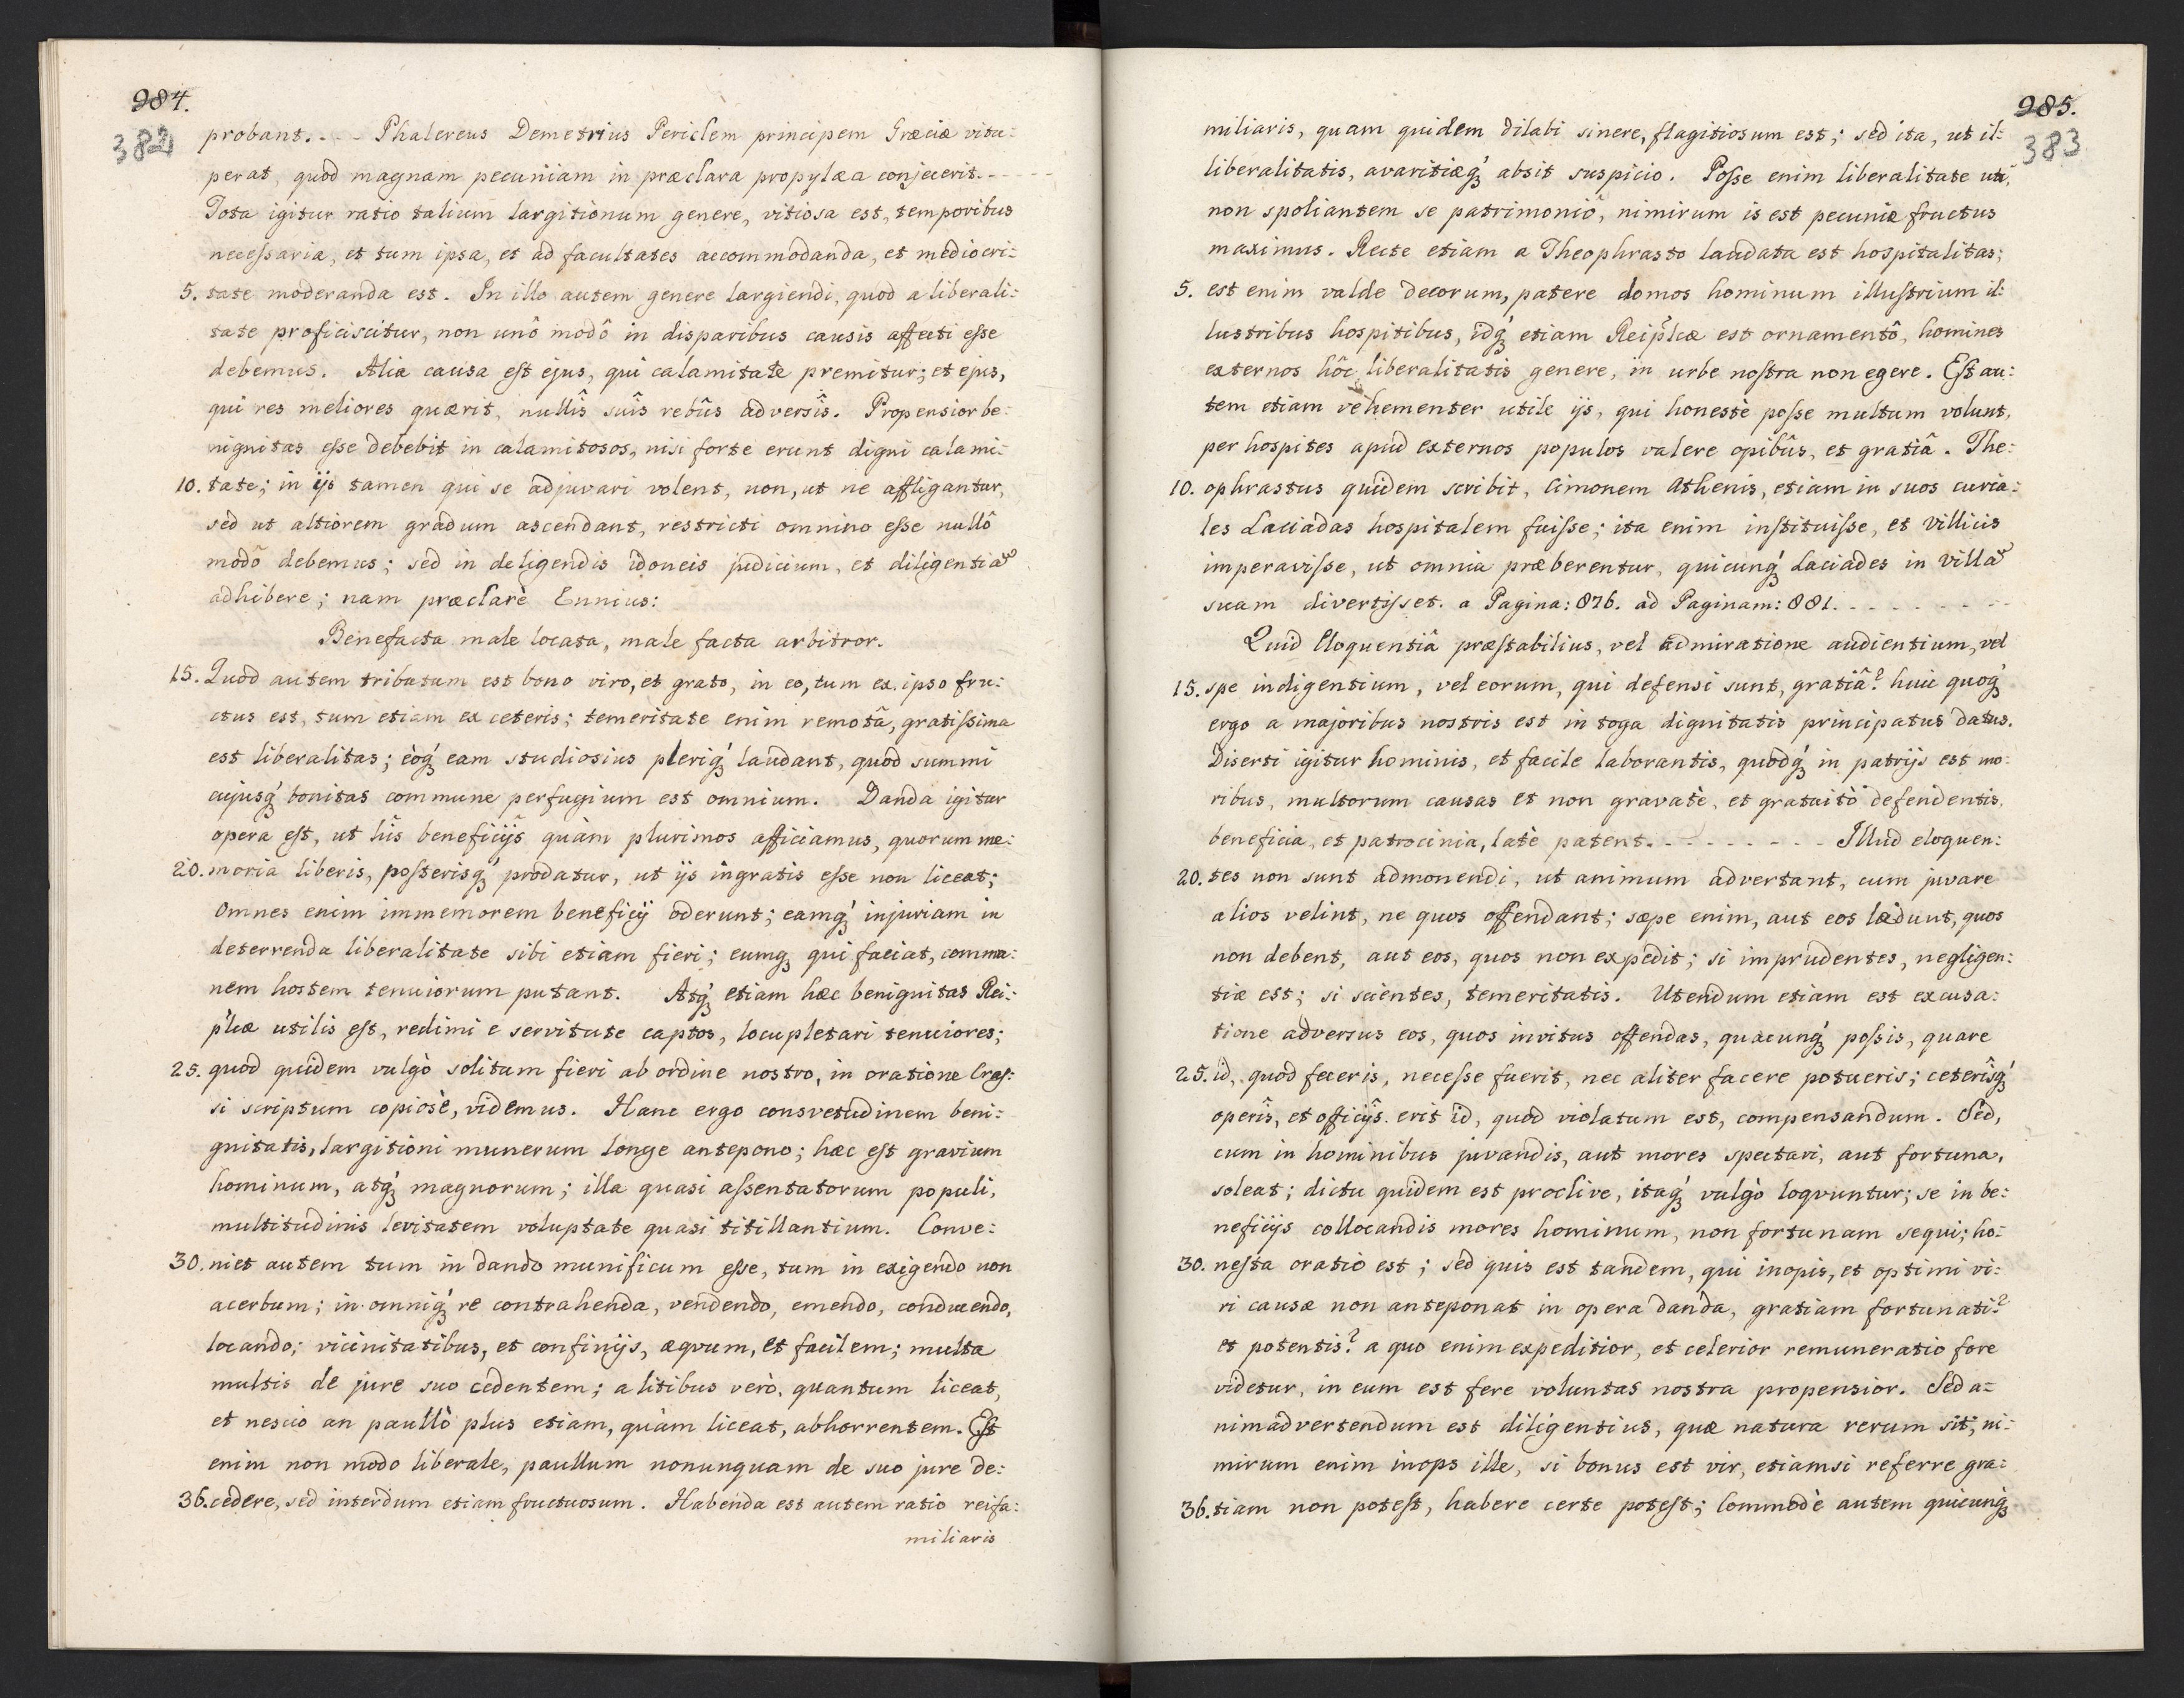 984.
382
probant. - - - Phalereus Demetrius Periclem principem Græciæ vitu:
perat, quod magnam pecuniam in præclara propylæa conjecerit. - - - - -
Tota igitur ratio talium largitionum genere, vitiosa est, temporibus
neceſsaria, et tum ipsa, et ad facultates accommodanda, et mediocri:
5. tate moderanda est. In illo autem genere largiendi, quod a liberali:
tate proficiscitur, non unô modô in disparibus causis affecti eſse
debemus. Alia causa eſt ejus, qui calamitate premitur; et ejus,
qui res meliores quærit, nullîs suîs rebûs adversîs. Propensior be:
nignitas eſse debebit in calamitosos, nisi forte erunt digni calami:
10. tate; in ijs tamen qui se adjuvari volent, non, ut ne affligantur,
sed ut altiorem gradum ascendant, restricti omnino eſse nullô
modô debemus; sed in deligendis idoneis judicium, et diligentiã
adhibere; nam præclarè Ennius:
Benefacta male locata, male facta arbitror.
15. Quod autem tributum est bono viro, et grato, in eo, tum ex ipso fru:
ctus est, tum etiam ex ceteris; temeritate enim remotâ, gratiſsima
est liberalitas; eòq́ eam studiosius pleriq́ laudant, quod summi
cujusq́ bonitas commune perfugium est omnium. Danda igitur
opera eſt, ut hîs beneficijs quàm plurimos afficiamus, quorum me:
20. moria liberis, poſterisq́ prodatur, ut ijs ingratis eſse non liceat;
Omnes enim immemorem beneficij oderunt; eamq́ injuriam in
deterrenda liberalitate sibi etiam fieri; eumq́ qui faciat, commu:
nem hostem tenuiorum putant. Atq́ etiam hæc benignitas Rei:
p'licæ utilis eſt, redimi e servitute captos, locupletari tenuiores;
25. quod quidem vulgò solitum fieri ab ordine nostro, in oratione Craſ:
si scriptum copiosè, videmus. Hanc ergo consvetudinem beni:
gnitatis, largitioni munerum longe antepono; hæc eſt gravium
hominum, atq́ magnorum; illa quasi aſsentatorum populi,
multitudinis levitatem voluptate quasi titillantium. Conve:
30. niet autem tum in dando munificum eſse, tum in exigendo non
acerbum; in omniq́ re contrahenda, vendendo, emendo, conducendo,
locando; vicinitatibus, et confinijs, æqvum, et facilem; multa
multis de jure suo cedentem; a litibus verò, quantum liceat,
et nescio an paullò plus etiam, quàm liceat, abhorrentem. Eſt
enim non modo liberale, paullum nonunquam de suo jure de:
36. cedere, sed interdum etiam fructuosum. Habenda est autem ratio reifa:
miliaris
985.
383
miliaris, quam quidem dilabi sinere, flagitiosum est; sed ita, ut il:
liberalitatis, avaritiæq́ absit suspicio. Poſse enim liberalitate uti,
non spoliantem se patrimoniô, nimirum is est pecuniæ fructus
maximus. Recte etiam a Theophrasto laudata est hospitalitas;
5. est enim valde decorum, patere domos hominum illuſtrium il:
lustribus hospitibus, idq́ etiam Reip'licæ est ornamentô, homines
externos hôc liberalitatis genere, in urbe noſtra non egere. Eſt au:
tem etiam vehementer utile ijs, qui honestè poſse multum volunt,
per hospites apud externos populos valere opibûs, et gratiâ. The:
10. ophrastus quidem scribit, Cimonem Athenis, etiam in suos curia:
les Laciadas hospitalem fuiſse; ita enim inſtituiſse, et villicis
imperaviſse, ut omnia præberentur, quicunq́ Laciades in villã
suam divertiſset. a Pagina: 876. ad Paginam: 881. - - - - - - - - -
Quid Eloquentiâ præſtabilius, vel admiratione audientium, vel
15. spe indigentium, vel eorum, qui defensi sunt, gratiâ? huic quoq́
ergo a majoribus nostris est in toga dignitatis principatus datus.
Diserti igitur hominis, et facile laborantis, quodq́ in patrijs est mo:
ribus, multorum causas et non gravatè, et gratuitò defendentis,
beneficia, et patrocinia, latè patent. - - - - - - - - Illud eloquen:
20. tes non sunt admonendi, ut animum advertant, cum juvare
alios velint, ne quos offendant; sæpe enim, aut eos lædunt, quos
non debent, aut eos, quos non expedit; si imprudentes, negligen:
tiæ est; si scientes, temeritatis. Utendum etiam est excusa:
tione adversus eos, quos invitus offendas, quacunq́ poſsis, quare
25. id, quod feceris, neceſse fuerit, nec aliter facere potueris; ceterîsq́
operîs, et officijs erit id, quod violatum est, compensandum. Sed,
cum in hominibus juvandis, aut mores spectari, aut fortuna,
soleat; dictu quidem est proclive, itaq́ vulgò loqvuntur; se in be:
neficijs collocandis mores hominum, non fortunam sequi; ho:
30. neſta oratio est; sed quis est tandem, qui inopis, et optimi vi:
ri causæ non anteponat in opera danda, gratiam fortunati?
et potentis? a quo enim expeditior, et celerior remuneratio fore
videtur, in eum est fere voluntas nostra propensior. Sed a:
nimadvertendum est diligentius, quæ natura rerum sit; ni:
mirum enim inops ille, si bonus est vir, etiamsi referre gra:
36. tiam non poteſt, habere certe poteſt; Commodè autem quicunq́